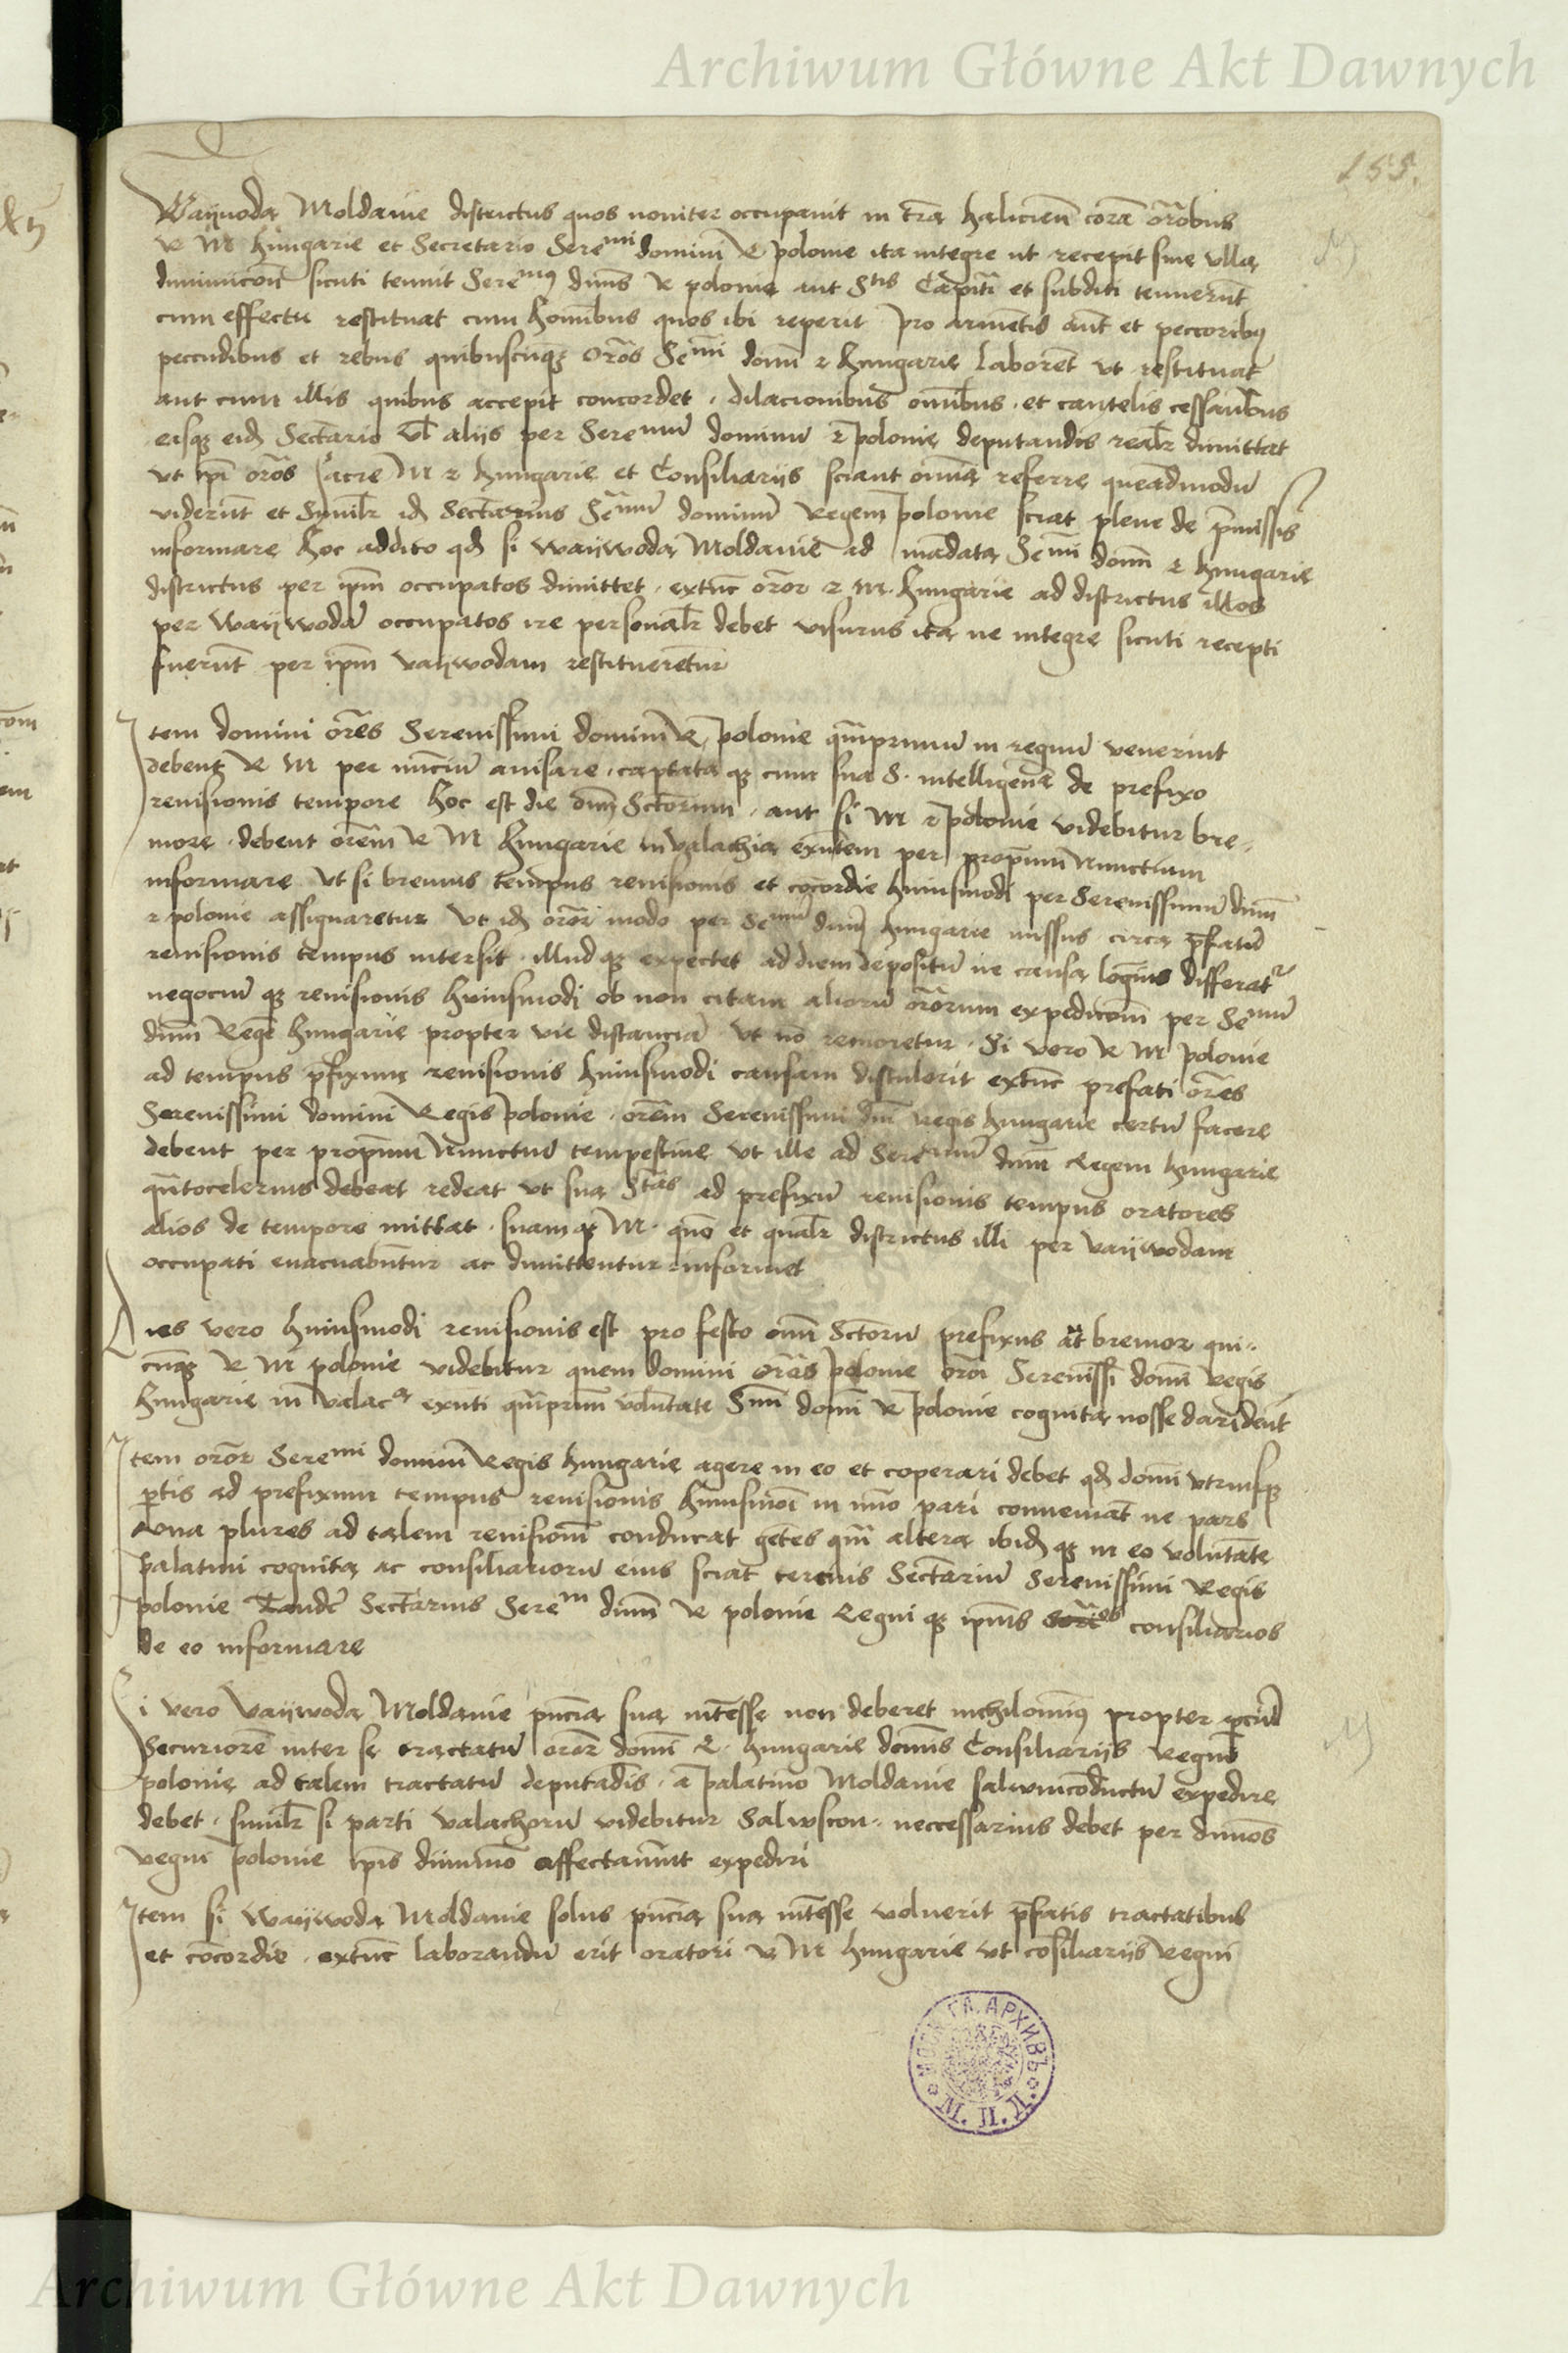 Archiwum Główne Akt Dawnych
155.
Waÿuoda Moldauie districtus quos nouiter occupauit in tra͞ halicien͞ cora͞ orabus͞
R M hungarie et Secretario Sere^mi domini R polonie ita integre ut recepit sine vlla
diminucion͞ sicuti tenuit Sere^mus dnu͞s R polonie aut S^tis Capitan͞ et subditi tenueru͞t
cum effectu restituat cum hominibus͞ quos ibi reperit pro arme͞tis aut͞ et peccoribus
peccudibus et rebus quibuscu͞q͗ oro͞s Se^mi domi͞ R hungarie laboren͞t vt restituat
aut cum illis quibus accepit concordet . dilacionibus omi͞bus . et cautelis cessan͞bus
eisq͗ eid͞ Secta͞rio vl͞ alijs per Sere^mum dominu͞ R polonie deputandis realr͞ dimittat
vt ip͞i oro͞s sacre M R hungarie et Consiliarijs sciant omnia referre quea͞dmodu͞
videru͞t et Simil͞r id͞ Secta͞rius Se^mum dominu͞ Regem polonie sciat plene de p͞missis
informare hoc addito q͞d si waÿwoda Moldauie ad ma͞data Se^mi domi͞ R hungarie
districtus per ip͞m occupatos dimittet . extu͞c oro͞r R M . hungarie ad districtus illos
per waÿwoda͞ occupatos ire personalr͞ debet visurus ita ne integre sicuti recepti
fueru͞t per ip͞m vaÿwodam restituere͞tur
Item domini or͞es Serenissimi domini͞ R polonie qua͞primum in regnu͞ venerint
debent R M per nu͞cciu͞ auisare . captata q͗ cum sua S . intelligen͞a de prefixo
reuisionis tempore hoc est die om͞ Scto͞rum . aut si M R polonie videbitur bre-
uiore . debent ore͞m R M hungarie in valachia exn͞tem per propriu͞m Nunctium
informare vt si breuius tempus reuisionis et co͞cordie huiusmodi per Serenissimu͞ dnu͞m
R polonie assignaretur vt id͞ oro͞r modo per Se^mum dnu͞m hungarie missus circa p͞fatu͞
reuisionis tempus intersit . illud q͗ expectet ad diem depositu͞ ne causa lo͞gius differat^r
negociu͞ q͗ reuisionis huiusmodi ob non citam alioru͞ ora͞torum expedicio͞m per Se^mum
dnu͞m Rege͞ hungarie propter vie distancia͞ vt no͞ remoretur . Si vero R M polonie
ad tempus p͞fixum reuisionis huiusmodi causam distulerit extu͞c prefati or͞es
Serenissimi domini͞ Regis polonie . ore͞m Serenissimi dni͞ regis hungarie certu͞ facere
debent per propriu͞m Nunctiu͞ tempestiue vt ille ad Sere^mum dnu͞m Regem hungarie
qua͞ntocelerius debeat redeat vt sua S^tas ad prefixu͞ reuisionis tempus oratores
alios de tempore mittat . suam q͗ M . quo͞ et qual͞r districtus illi per vaÿwodam
occupati euacuabu͞ntur ac dimittentur informet
Dies vero huiusmodi reuisionis est pro festo om͞i Scto͞ru͞ prefixus a͞ut breuior qui-
cu͞nq͗ R M polonie videbitur quem domini ora͞s polonie oro͞i Sereniss͞i domi͞ regis
hungarie in valac^a exn͞ti qua͞primu͞m volu͞ntate S^mi domi͞ R polonie cognita nosse dari debe͞nt
Item oro͞r Sere^mi domini͞ Regis hungarie agere in eo et coperari debet q͞d domi͞ vtriusq͗
p͞tis ad prefixum tempus reuisionis huiusmo͞i in nu͞o pari conuenia͞t ne pars
vna plures ad talem reuisione͞m conducat ge͞tes qua͞m altera ibid͞ q͗ in eo volu͞tate
palatini cognita ac consiliarioru͞ eius sciat͞ cercius Secta͞riu͞ Serenissimi Regis
polonie Tande͞ Secta͞rius Sere^m dnu͞m R polonie Regni q͗ ip͞ius consiliarios
de eo informare
Si vero vaÿwoda Moldauie pn͞cia sua int͞esse non deberet nichilomin͞us propter
Securiore͞ inter se tractatu͞ oro͞r domi͞ R . hungarie domi͞s Consiliarijs regni͞
polonie ad talem tractatu͞ deputa͞dis . a palatino Moldauie saluumco͞ductu͞ expedire
debet . simil͞r si parti valachoru͞ videbitur Saluscon- neccessarius debet per dnn͞os
regni polonie ip͞is dummo͞ affectauerint expediri
Item si waÿwoda Moldauie solus pn͞cia sua int͞esse voluerit p͞fatis tractatibus
et co͞ncordie . extu͞c laborandu͞ erit oratori R M hungarie vt co͞siliarijs Regni
Archiwum Główne Akt Dawnych